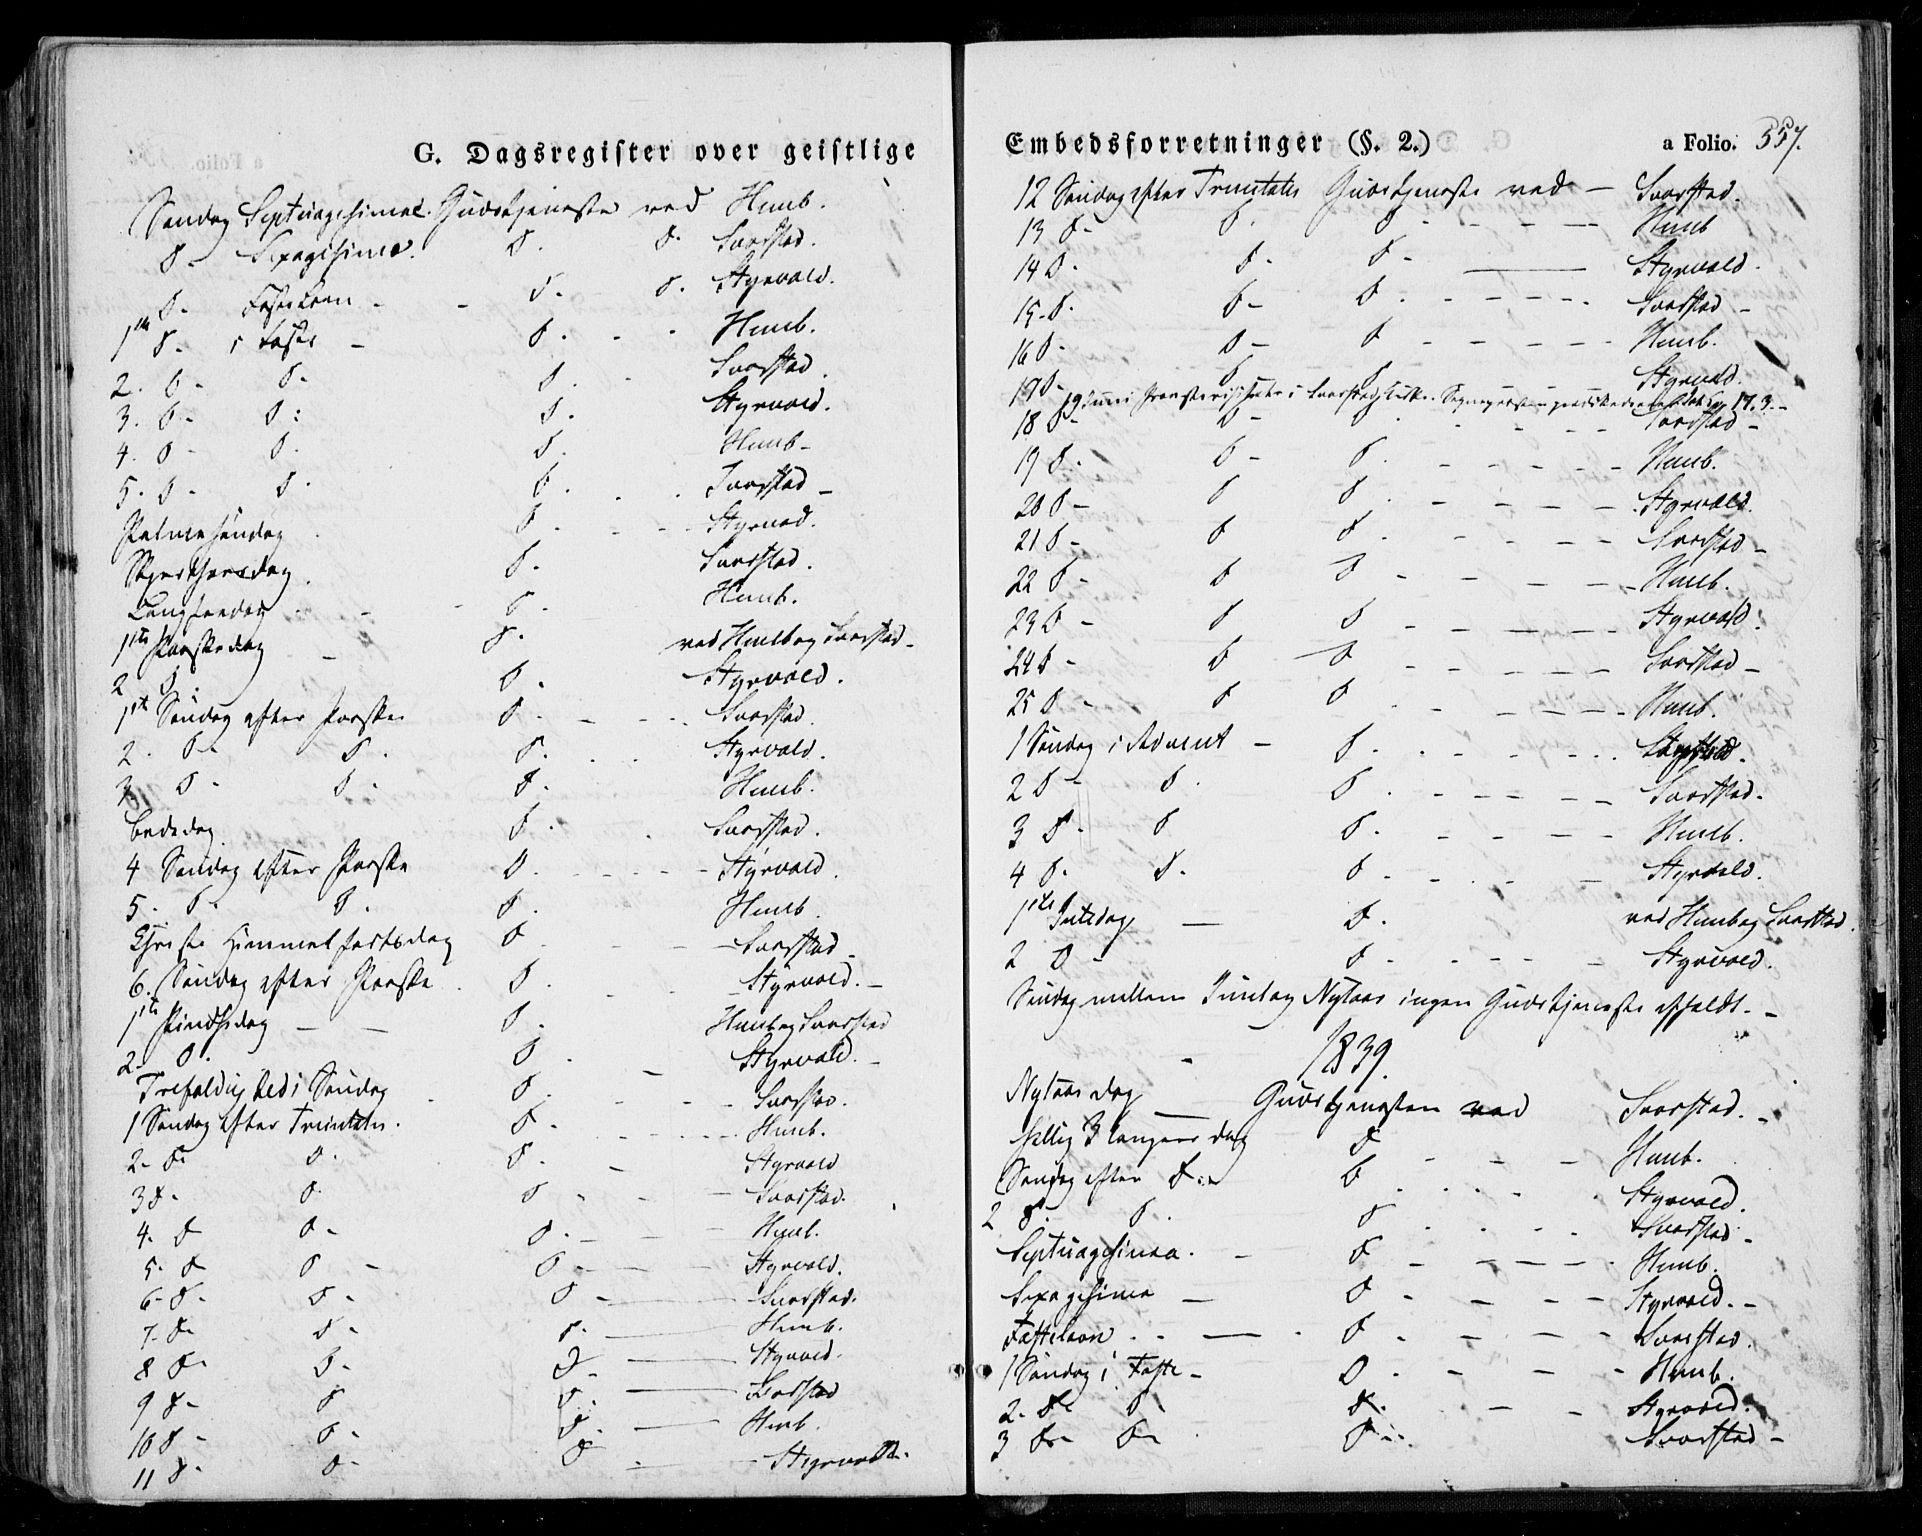 G. Dagsregister over geistlige
Søndag Septuagesima Gudstjeneste ved Hemb.
D- Sexagesima. D. D. Svarstad.
D- Fastelavn - - D. D. Styrvold.
1ste D- i Faste - D. - - Hemb.
2. D- D- D. - Svarstad.
3. D- D. D. Styrvold.
4. D- D. D. Hemb-
5. D- D. D. - - Svarstad-
Palmesøndag D. - - Styrvold.
Skjærthorsdag. D. Svarstad.
Langfredag - - D. Hemb.
1ste Paaskedag - D. ved Hemb og Svarstad-
2 D. D. Styrvold.
1ste Søndag efter Paaske D. - - Svarstad.
2. D- D. D. - - Styrvold.
3 D- D. D. Hemb.
Bededag D. - Svarstad.
4 Søndag efter Paaske D. - - - - Styrvold.
5. D. D. D. Hemb.
Christi Himmelfartsdag D - - - Svarstad-
6. Søndag efter Paaske D. - - Styrvold.-
1ste Pindsedag - - D. Hemb og Svarstad
2- D. D. - Styrvold.-
Trefoldigheds Søndag D. - - - Svarstad.
1 Søndag efter Trinitatis. D. - - - - Hemb.
2- D. D. D. - Styrvold
3 D- D. D - - - Svarstad.
4. D D- D. - - - Hemb.
5. D D - D - - - Styrvold.
6- D- D- D - - Svarstad.
7- D- D- D. - Hemb.
8 D- D- D - Styrvold.
9 D- D D. - Svarstad
10 D- D- D. - Hemb.
11 D- D- D - - Styrvold.
Embedsforretninger (§. 2.) a Folio. 557.
12 Søndag efter Trinitatis Gudstjeneste ved - Svarstad.
13 D- D. D - - - - Hemb
14 D. D- D- - Styrvold.
15- D. D- D. - - - - Svarstad -
16 D. D- D - - - - - Hemb.
17 D- D D Styrvold.
19 Juni i Svarstad 17.3.-
18 D- D- D. - - - - Svarstad-
19 D. D- D. - - - - - Hemb.
20 D- D D. - - - - Styrvold.
21 D- D D. - - - - Svarstad-
22 D- D D - - - - - Hemb.
23 D- D D - - - - - Styrvold.
24 D- D D - - - - - Svarstad-
25 D- D D - - - - - Hemb.
1 Søndag i Advent - D. - - - - Styrvold.
2 D- D. D. - - - - - Svarstad.
3 D- D D. - - - - Hemb.
4 D. D. D. - - - Styrvold.
1ste Juledag - D. ved Hemb og Svarstad.
2 D- D. - - - - Styrvold.
Søndag mellem Juul og Nytaar ingen Gudstjeneste afholdt.-
1839.
Nytaarsdag - Gudstjenesten ved Svarstad.-
hellig 3 kongers dag D - - - Hemb.
Søndag efter D.- D - - - - Styrvold.
2 D- D. D - - - Svarstad-
Septuagesima. - D - - - - Hemb.
Sexagesima - D - - - - Styrvold.-
Fastelavn. - - - D - - - - Svarstad.
1 Søndag i Faste- D. - - - Hemb.
2- D- D. D. - - Styrvold.
3 D- D- D.- Svarstad-